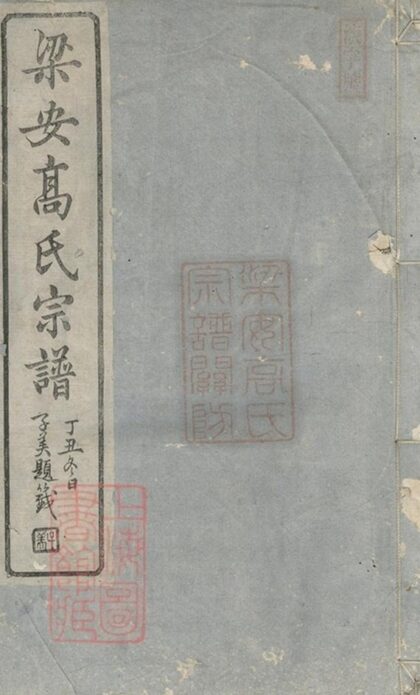 梁安髙氏宗譜
丁丑冬日
子美題籤
梁安高氏
宗譜關防
上海圖
書館藏